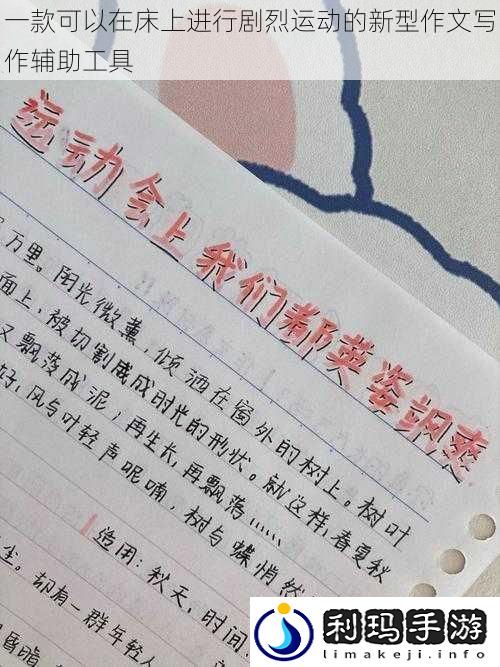 一款可以在床上进行剧烈运动的新型作文写
作辅助工具
运动会上我们都英姿飒爽
万里。阳光微薰，倾洒在窗外的树上。树叶
面上，被切割成成时光的形状。就这样，春夏秋
又飘落成泥；再生长，再飘落……
好，风与叶轻声呢喃，树与蝶悄然
适用：秋天，时间，
尘。却有一群年轻人
利玛手游
limakeji.info